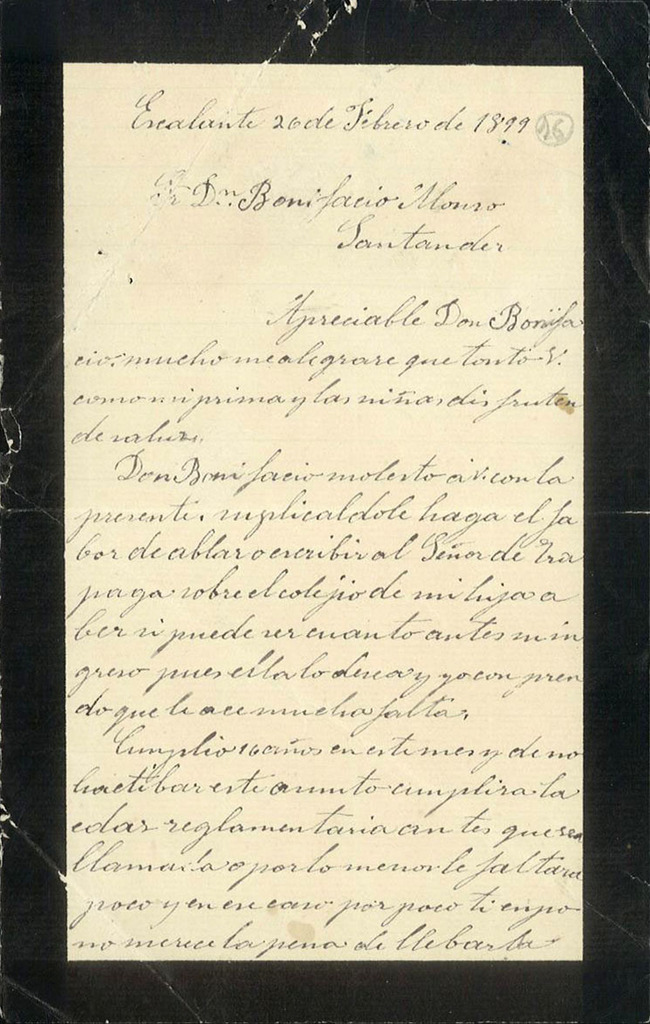 Escalante 26 de Febrero de 1899 26
Sr Dn. Bonifacio Alonso
Santander
Apreciable Don Bonifa
cio: mucho me alegrare que tonto V.
como mi prima y las niñas disfruten
de salus.
Don Bonifacio molesto a V. con la
presente. suplicaldole haga el fa
bor de ablar o escribir al Señor de Tra
paga sobre el colejio de mi hija a
ber si puede ser cuanto antes su in
greso pues ella lo desea y yo conpren
do que le ace mucha falta.
Cumplio 16 años en este mes y de no
hactibar este asunto cumplira la
edaz reglamentaria antes que sea
llamada o por lo menos le faltara
poco y en ese caso por poco tienpo
no merece la pena de llebarla